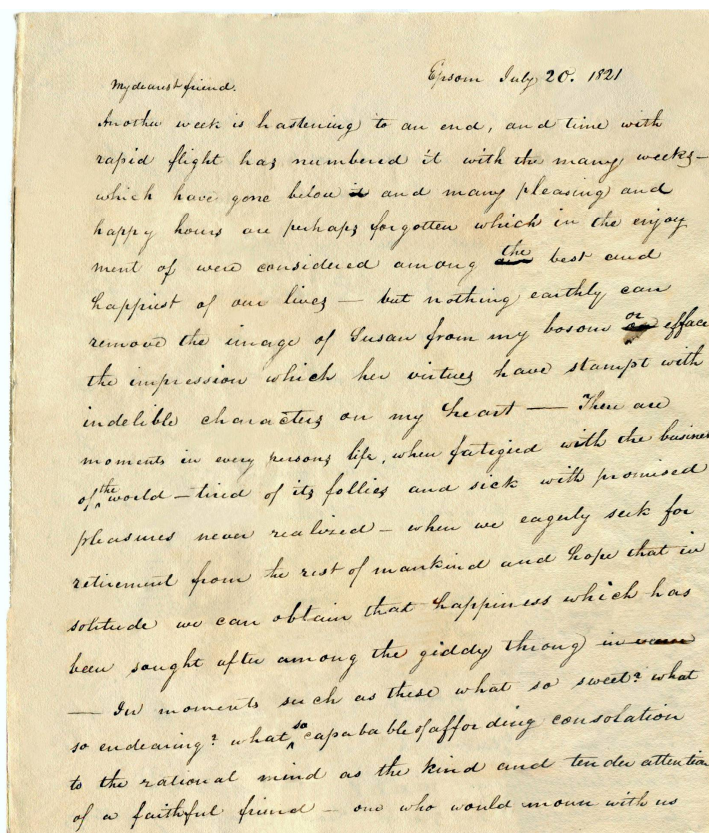 Epsom July 20. 1821
My dearest friend.
Another week is hastening to an end, and time with
rapid flight has numbered it with the many weeks –
which have gone before it and many pleasing and
happy hours are perhaps forgotten which in the enjoy
ment of were considered among the best and
happiest of our lives – but nothing earthly can
remove the image of Susan from my bosom or efface
the impression which her virtues have stampt with
indelible characters on my heart — There are
moments in every persons life, when fatigued with the business
of the world – tired of its follies and sick with promised
pleasures never realized – when we eagerly seek for
retirement from the rest of mankind and hope that in
solitude we can obtain that happiness which has
been sought after among the giddy throng in vain
— In moments such as these what so sweet? what
so endearing? what so capabable of affording consolation
to the rational mind as the kind and tender attention
of a faithful friend – one who would mourn with us